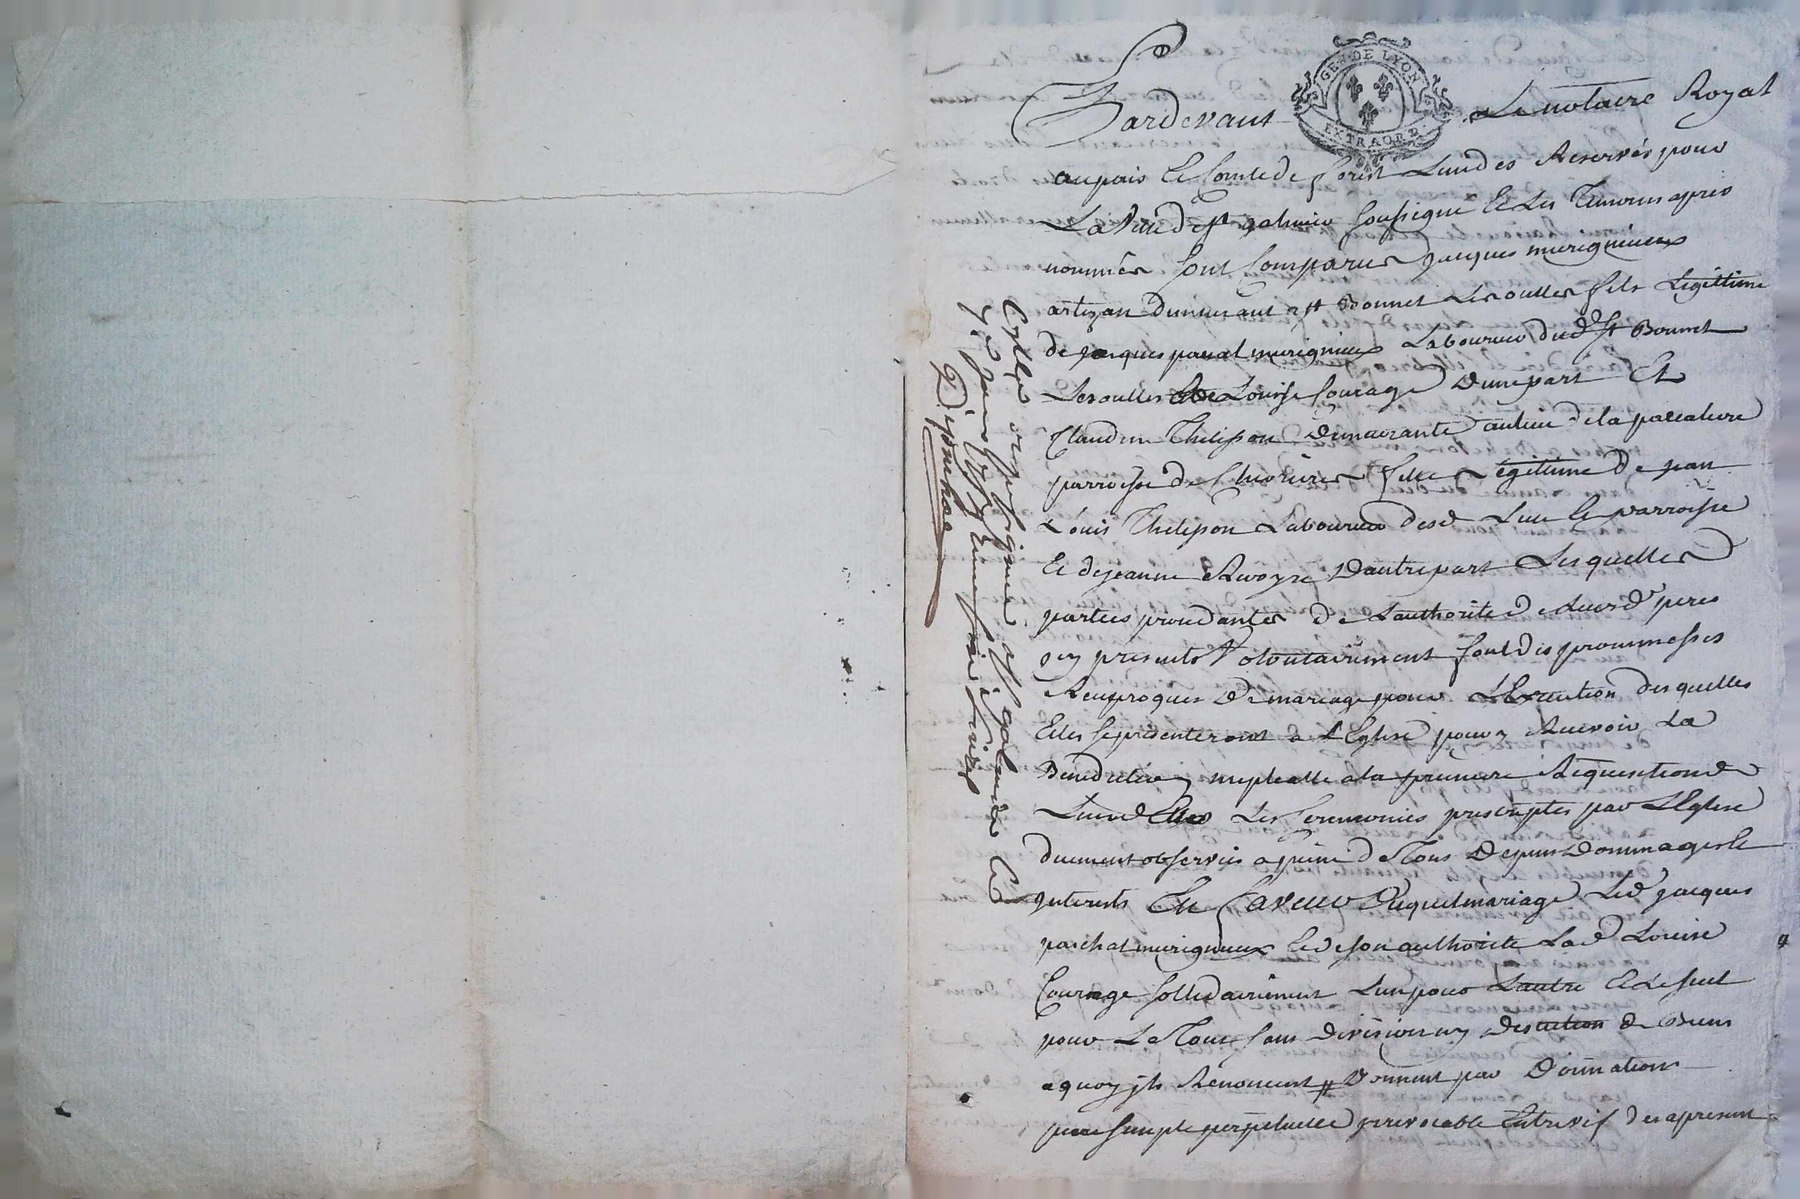 GEN DE LYON
EXTRAORD
Pardevant Le notaire Royal
au païs Et Comté de forest Lun des Reservés pour
La Ville de st galmier soussigné Et Les Temoins apres
nommés sont Comparus Jacques murigneux
artizan demeurant a st Bonnet Lesoulles fils Legittime
de jacques pascal murigneux Laboureur dud st Bonnet
Lesoulles Et de Louise Courage d'une part Et
Claudine Thelisson demeurante au lieu de la
parroisse de Chevrieres fille Legitime de jean
Louis Thelisson Laboureur desd Lieu Et parroisse
Et de jeanne Rivoyre D'autre part Lesquelles
parties procedantes de L'authorité de leursd peres
icy presents Volontairement font des prommesses
Reciproques de mariage pour L'Execution desquelles
Elles se presenteront a L'Eglise pour y Recevoir La
Benediction nuptialle a la premiere Requisition de
L'une d'Elles Les Ceremonies prescriptes par L'Eglise
duement observées a peine de Tous Depens Dommages Et
Interests En faveur Duquel mariage Led jacques
paschal murigneux Et de son authorité Lad Louise
Courage sollidairement L'un pour L'autre Et Le seul
pour Le Tout sans Division ny discution de Biens
a quoy ils Renoncent Donnent par Donnation
pure simple perpetuelle jrrevocable Entrevif des a present
Collé